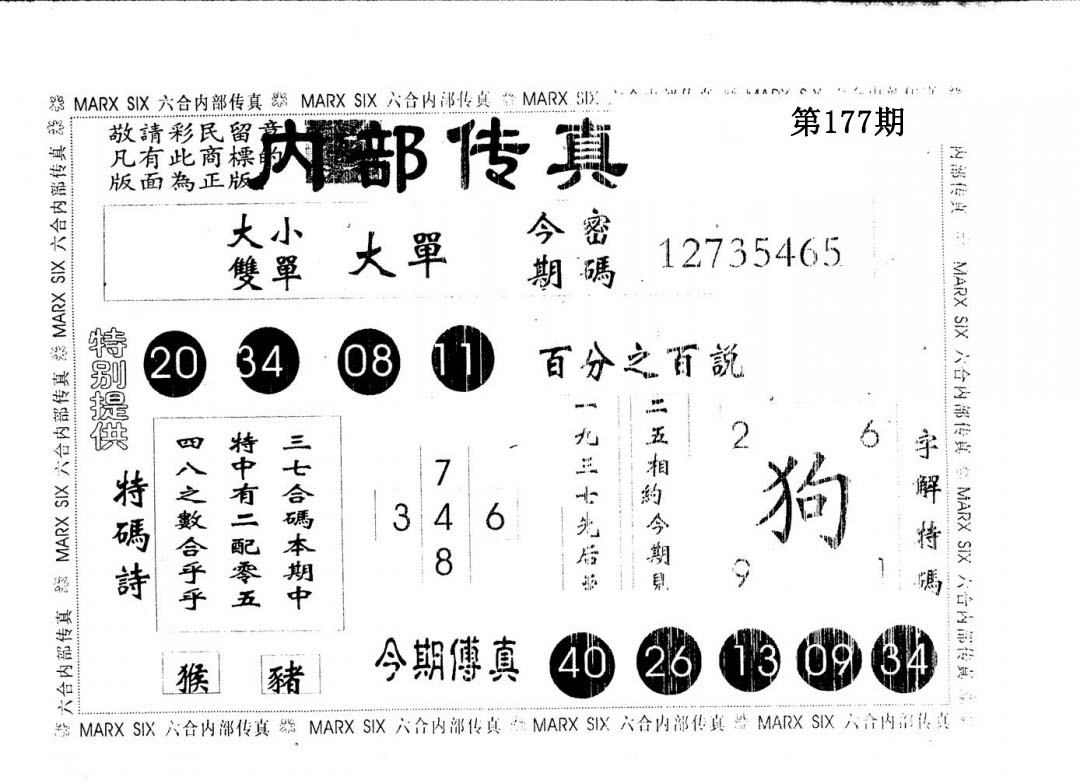 MARX SIX 六合内部传真 MARX SIX 六合内部传真 MARX SIX
第177期
敬請彩民留意
凡有此商標的
版面為正版
内部传真
大小
雙單
大單
今期
密碼
12735465
特别提供
20 34 08 11
百分之百説
特碼詩
三七合碼本期中
特中有二配零五
四八之數合乎乎
猴 豬
7
3 4 6
8
二五相約今期見
一九三七先后
2 6
狗
9 1
字解特碼
今期傳真
40 26 13 09 34
MARX SIX 六合内部传真 MARX SIX 六合内部传真 MARX SIX 六合内部传真 MARX SIX 六合内部传真
六合内部传真 MARX SIX 六合内部传真 MARX SIX 六合内部传真 MARX SIX 六合内部传真
内部传真 MARX SIX 六合内部传真 MARX SIX 六合内部传真